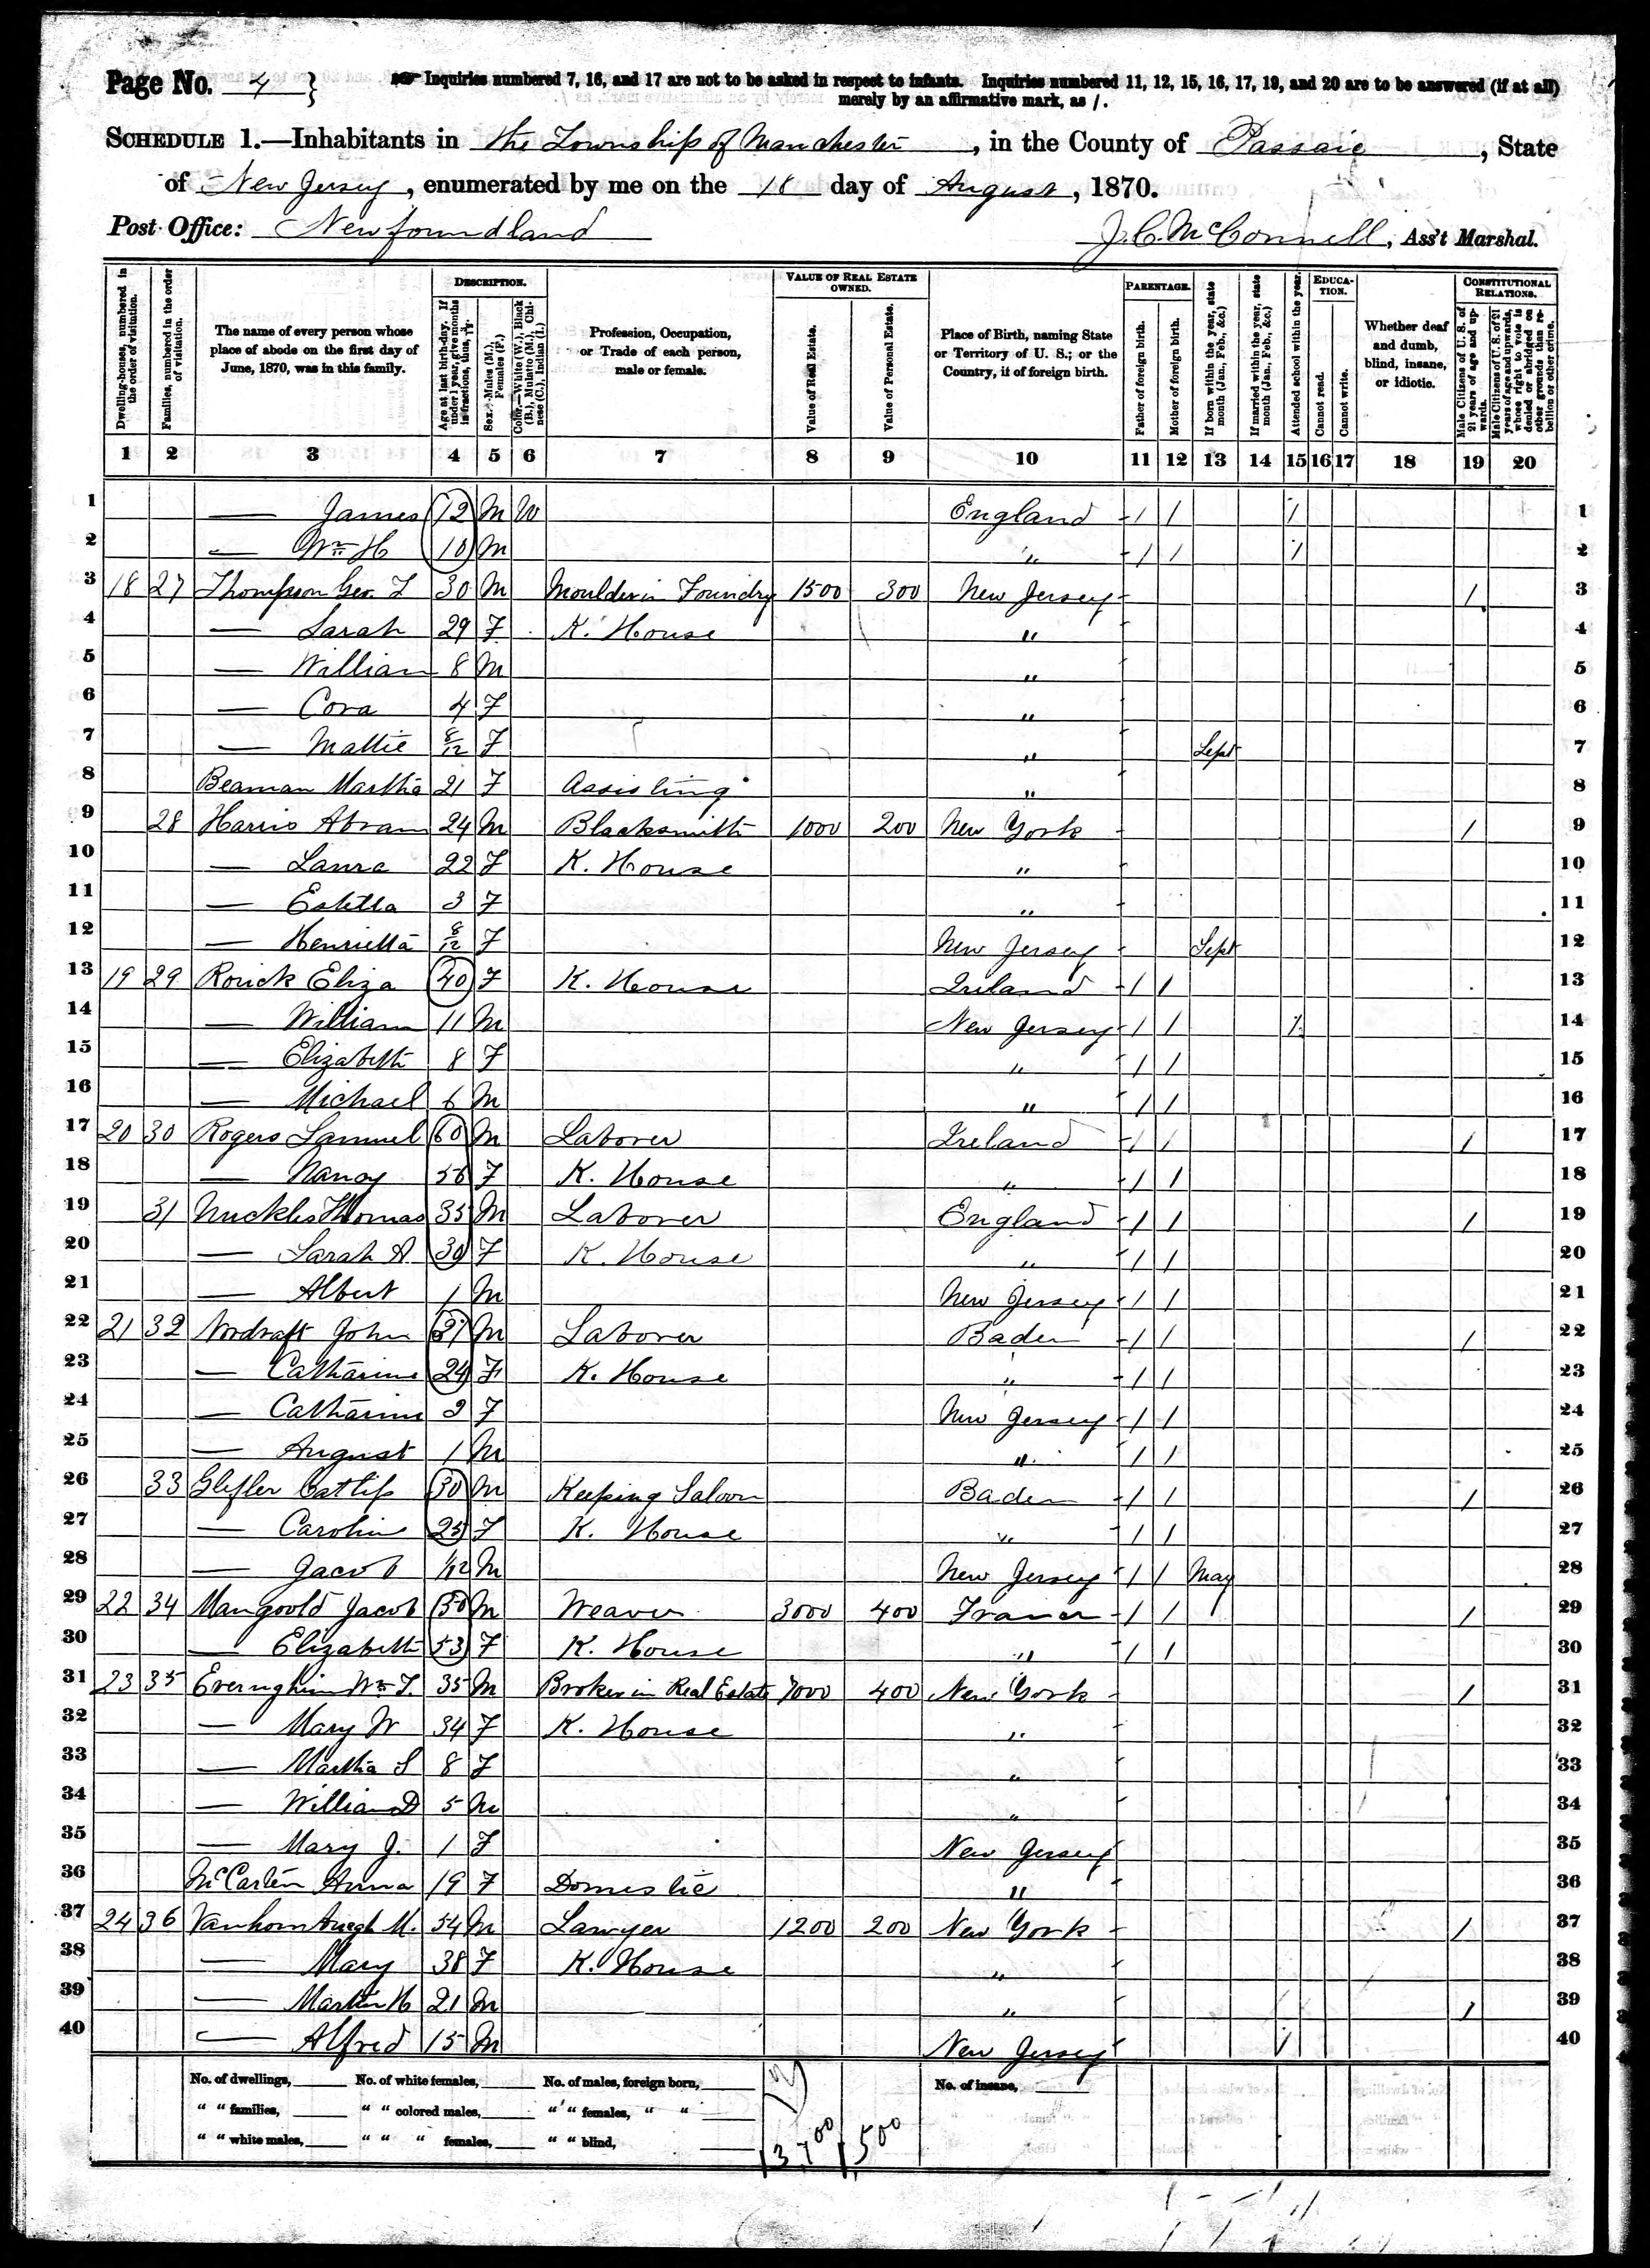 Page No. 4 } Inquiries numbered 7, 16, and 17 are not to be asked in respect to infants. Inquiries numbered 11, 12, 15, 16, 17, 19, and 20 are to be answered (if at all)
merely by an affirmative mark, as /.
SCHEDULE 1.—Inhabitants in the Township of Manchester, in the County of Passaic, State
of New Jersey, enumerated by me on the 18 day of August, 1870.
Post Office: Newfoundland J. C. McConnell, Ass't Marshal.
Dwelling-houses, numbered in the order of visitation.
Families, numbered in the order of visitation.
The name of every person whose place of abode on the first day of June, 1870, was in this family.
DESCRIPTION.
Age at last birth-day. If under 1 year, give months in fractions, thus, 3/12.
Sex.—Males (M.), Females (F.)
Color.—White (W.), Black (B.), Mulatto (M.), Chinese (C.), Indian (I.)
Profession, Occupation, or Trade of each person, male or female.
VALUE OF REAL ESTATE OWNED.
Value of Real Estate.
Value of Personal Estate.
Place of Birth, naming State or Territory of U. S.; or the Country, if of foreign birth.
PARENTAGE.
Father of foreign birth.
Mother of foreign birth.
If born within the year, state month (Jan., Feb., &c.)
If married within the year, state month (Jan., Feb., &c.)
Attended school within the year.
EDUCATION.
Cannot read.
Cannot write.
Whether deaf and dumb, blind, insane, or idiotic.
CONSTITUTIONAL RELATIONS.
Male Citizens of U. S. of 21 years of age and upwards.
Male Citizens of U. S. of 21 years of age and upwards, whose right to vote is denied or abridged on other grounds than rebellion or other crime.
1 2 3 4 5 6 7 8 9 10 11 12 13 14 15 16 17 18 19 20
1 — James 12 M W England / / / 1
2 — Wm H 10 M " / / / 2
3 18 27 Thompson Geo. T 30 M Moulder in Foundry 1500 300 New Jersey / 3
4 — Sarah 29 F K. House " 4
5 — William 8 M " 5
6 — Cora 4 F " 6
7 — Mattie 8/12 F " Sept 7
8 Beaman Martha 21 F Assisting " 8
9 28 Harris Abram 24 M Blacksmith 1000 200 New York / 9
10 — Laura 22 F K. House " 10
11 — Estella 3 F " 11
12 — Henrietta 8/12 F New Jersey Sept 12
13 19 29 Rorick Eliza 40 F K. House Ireland / / 13
14 — William 11 M New Jersey / / / 14
15 — Elizabeth 8 F " / / 15
16 — Michael 6 M " / / 16
17 20 30 Rogers Samuel 60 M Laborer Ireland / / / 17
18 — Nancy 56 F K. House " / / 18
19 31 Nuckles Thomas 35 M Laborer England / / / 19
20 — Sarah A. 30 F K. House " / / 20
21 — Albert 1 M New Jersey / / 21
22 21 32 Nordraft John 27 M Laborer Baden / / / 22
23 — Catharine 24 F K. House " / / 23
24 — Catharine 2 F New Jersey / / 24
25 — August 1 M " / / 25
26 33 Catlip 30 M Keeping Saloon Baden / / / 26
27 — Caroline 25 F K. House " / / 27
28 — Jacob 1/12 M New Jersey / / May 28
29 22 34 Mangold Jacob 50 M Weaver 3000 400 France / / / 29
30 — Elizabeth 53 F K. House " / / 30
31 23 35 Evernghim Wm T. 35 M Broker in Real Estate 7000 400 New York / 31
32 — Mary W 34 F K. House " 32
33 — Martha S 8 F " 33
34 — William D 5 M " 34
35 — Mary J. 1 F New Jersey 35
36 McCarten Anna 19 F Domestic " 36
37 24 36 Vanhorn M. 54 M Lawyer 1200 200 New York / 37
38 — Mary 38 F K. House " 38
39 — Martin H 21 M " / 39
40 — Alfred 15 M New Jersey / 40
No. of dwellings, No. of white females, No. of males, foreign born, No. of insane,
" " families, " " colored males, " " females, " "
" " white males, " " " females, " " blind,
13,700 1,500